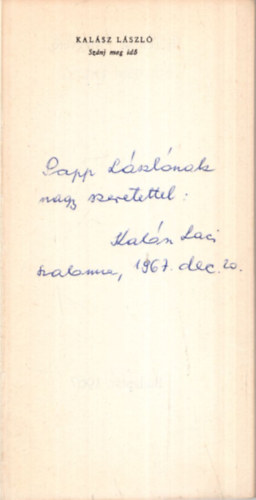 KALÁSZ LÁSZLÓ
Szánj meg idő
Papp Lászlónak
nagy szeretettel:
Kalász Laci
Szalonna, 1967. dec. 20.